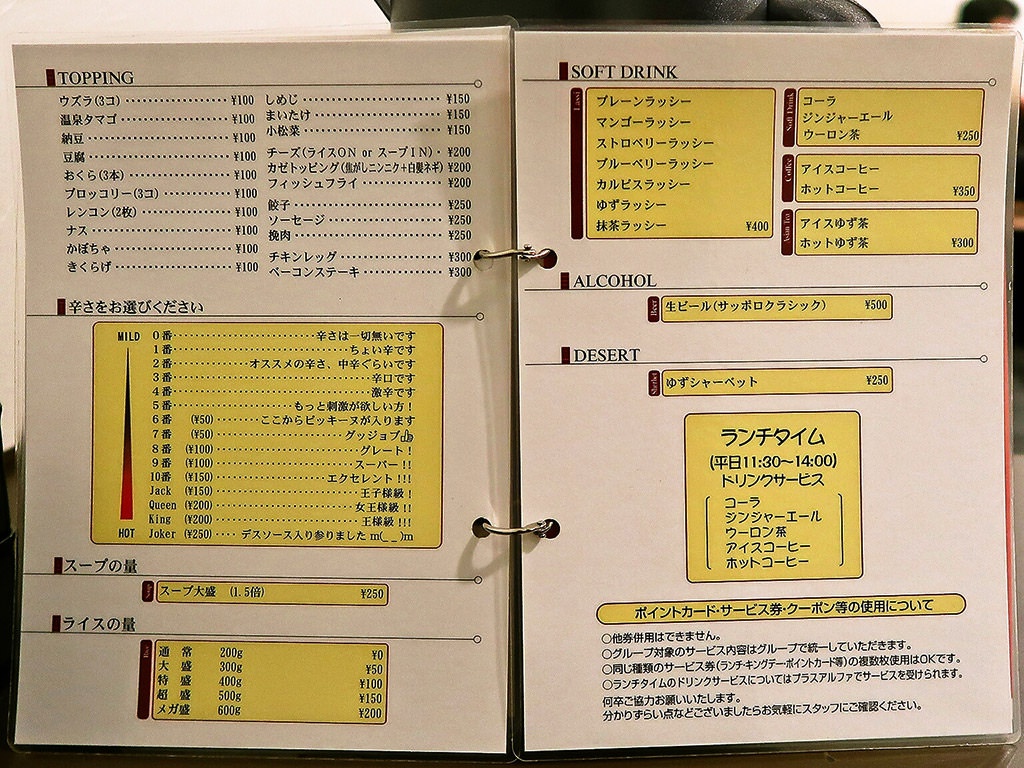 TOPPING
ウズラ(3コ) ¥100
温泉タマゴ ¥100
納豆 ¥100
豆腐 ¥100
おくら(3本) ¥100
ブロッコリー(3コ) ¥100
レンコン(2枚) ¥100
ナス ¥100
かぼちゃ ¥100
きくらげ ¥100
しめじ ¥150
まいたけ ¥150
小松菜 ¥150
チーズ(ライスON or スープIN) ¥200
カゼトッピング(焦がしニンニク+白髪ネギ) ¥200
フィッシュフライ ¥200
餃子 ¥250
ソーセージ ¥250
挽肉 ¥250
チキンレッグ ¥300
ベーコンステーキ ¥300
辛さをお選びください
MILD 0番 辛さは一切無いです
1番 ちょい辛です
2番 オススメの辛さ、中辛ぐらいです
3番 辛口です
4番 激辛です
5番 もっと刺激が欲しい方!
6番 (¥50) ここからピッキーヌが入ります
7番 (¥50) グッジョブ
8番 (¥100) グレート!
9番 (¥100) スーパー!!
10番 (¥150) エクセレント!!!
Jack (¥150) 王子様級!
Queen (¥200) 女王様級!!
King (¥200) 王様級!!!
HOT Joker (¥250) デスソース入り参りました m(_ _)m
スープの量
Soup
スープ大盛 (1.5倍) ¥250
ライスの量
Rice
通常 200g ¥0
大盛 300g ¥50
特盛 400g ¥100
超盛 500g ¥150
メガ盛 600g ¥200
SOFT DRINK
Lassi
プレーンラッシー
マンゴーラッシー
ストロベリーラッシー
ブルーベリーラッシー
カルピスラッシー
ゆずラッシー
抹茶ラッシー ¥400
Soft Drink
コーラ
ジンジャーエール
ウーロン茶 ¥250
Coffee
アイスコーヒー
ホットコーヒー ¥350
Asian Tea
アイスゆず茶
ホットゆず茶 ¥300
ALCOHOL
Beer
生ビール(サッポロクラシック) ¥500
DESERT
Sherbet
ゆずシャーベット ¥250
ランチタイム
(平日11:30〜14:00)
ドリンクサービス
コーラ
ジンジャーエール
ウーロン茶
アイスコーヒー
ホットコーヒー
ポイントカード・サービス券・クーポン等の使用について
○他券併用はできません。
○グループ対象のサービス内容はグループで統一していただきます。
○同じ種類のサービス券(ランチキングデー・ポイントカード等)の複数枚使用はOKです。
○ランチタイムのドリンクサービスについてはプラスアルファでサービスを受けられます。
何卒ご協力お願いいたします。
分かりずらい点などございましたらお気軽にスタッフにご確認ください。